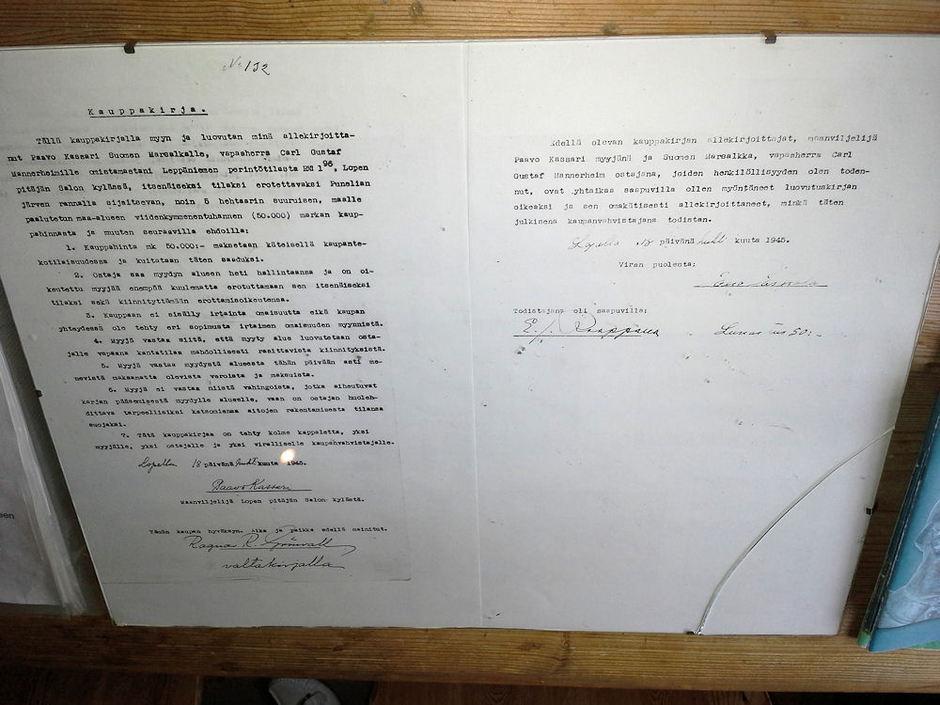 No 132
Kauppakirja.
Tällä kauppakirjalla myyn ja luovutan minä allekirjoitta-
nut Paavo Kassari Suomen Marsalkalle, vapaaherra Carl Gustaf
Mannerheimille omistamastani Leppäniemen perintötilasta RN 1 96, Lopen
pitäjän Salon kylässä, itsenäiseksi tilaksi erotettavaksi Punelian
järven rannalla sijaitsevan, noin 5 hehtaarin suuruisen, maalle
paalutetun maa-alueen viidenkymmenentuhannen (50.000) markan kaup-
pahinnasta ja muuten seuraavilla ehdoilla:
1. Kauppahinta mk 50.000:- maksetaan käteisellä kaupante-
kotilaisuudessa ja kuitataan täten saaduksi.
2. Ostaja saa myydyn alueen heti hallintaansa ja on oi-
keutettu myyjää enempää kuulematta erotuttamaan sen itsenäiseksi
tilaksi sekä kiinnityttämään erottamisoikeutensa.
3. Kauppaan ei sisälly irtainta omaisuutta eikä kaupan
yhteydessä ole tehty eri sopimusta irtaimen omaisuuden myynnistä.
4. Myyjä vastaa siitä, että myyty alue luovutetaan osta-
jalle vapaana kantatilaa mahdollisesti rasittavista kiinnityksistä.
5. Myyjä vastaa myydystä alueesta tähän päivään asti me-
nevistä maksamatta olevista veroista ja maksuista.
6. Myyjä ei vastaa niistä vahingoista, jotka aiheutuvat
karjan pääsemisestä myydylle alueelle, vaan on ostajan huoleh-
dittava tarpeellisiksi katsomiensa aitojen rakentamisesta tilansa
suojaksi.
7. Tätä kauppakirjaa on tehty kolme kappaletta, yksi
myyjälle, yksi ostajalle ja yksi viralliselle kaupanvahvistajalle.
Lopella 18 päivänä huhti kuuta 1945.
Paavo Kassari
Maanviljelijä Lopen pitäjän Salon kylästä.
Tämän kaupan hyväksyn. Aika ja paikka edellä mainitut.
Ragna R. Grönvall
valtakirjalla
Edellä olevan kauppakirjan allekirjoittajat, maanviljelijä
Paavo Kassari myyjänä ja Suomen Marsalkka, vapaaherra Carl
Gustaf Mannerheim ostajana, joiden henkilöllisyyden olen toden-
nut, ovat yhtaikaa saapuvilla ollen myöntäneet luovutuskirjan
oikeaksi ja sen omakätisesti allekirjoittaneet, minkä täten
julkisena kaupanvahvistajana todistan.
Lopella 18 päivänä huhti kuuta 1945.
Viran puolesta:
Todistajana oli saapuvilla:
E. J. Kaappana
Lunas 50:-